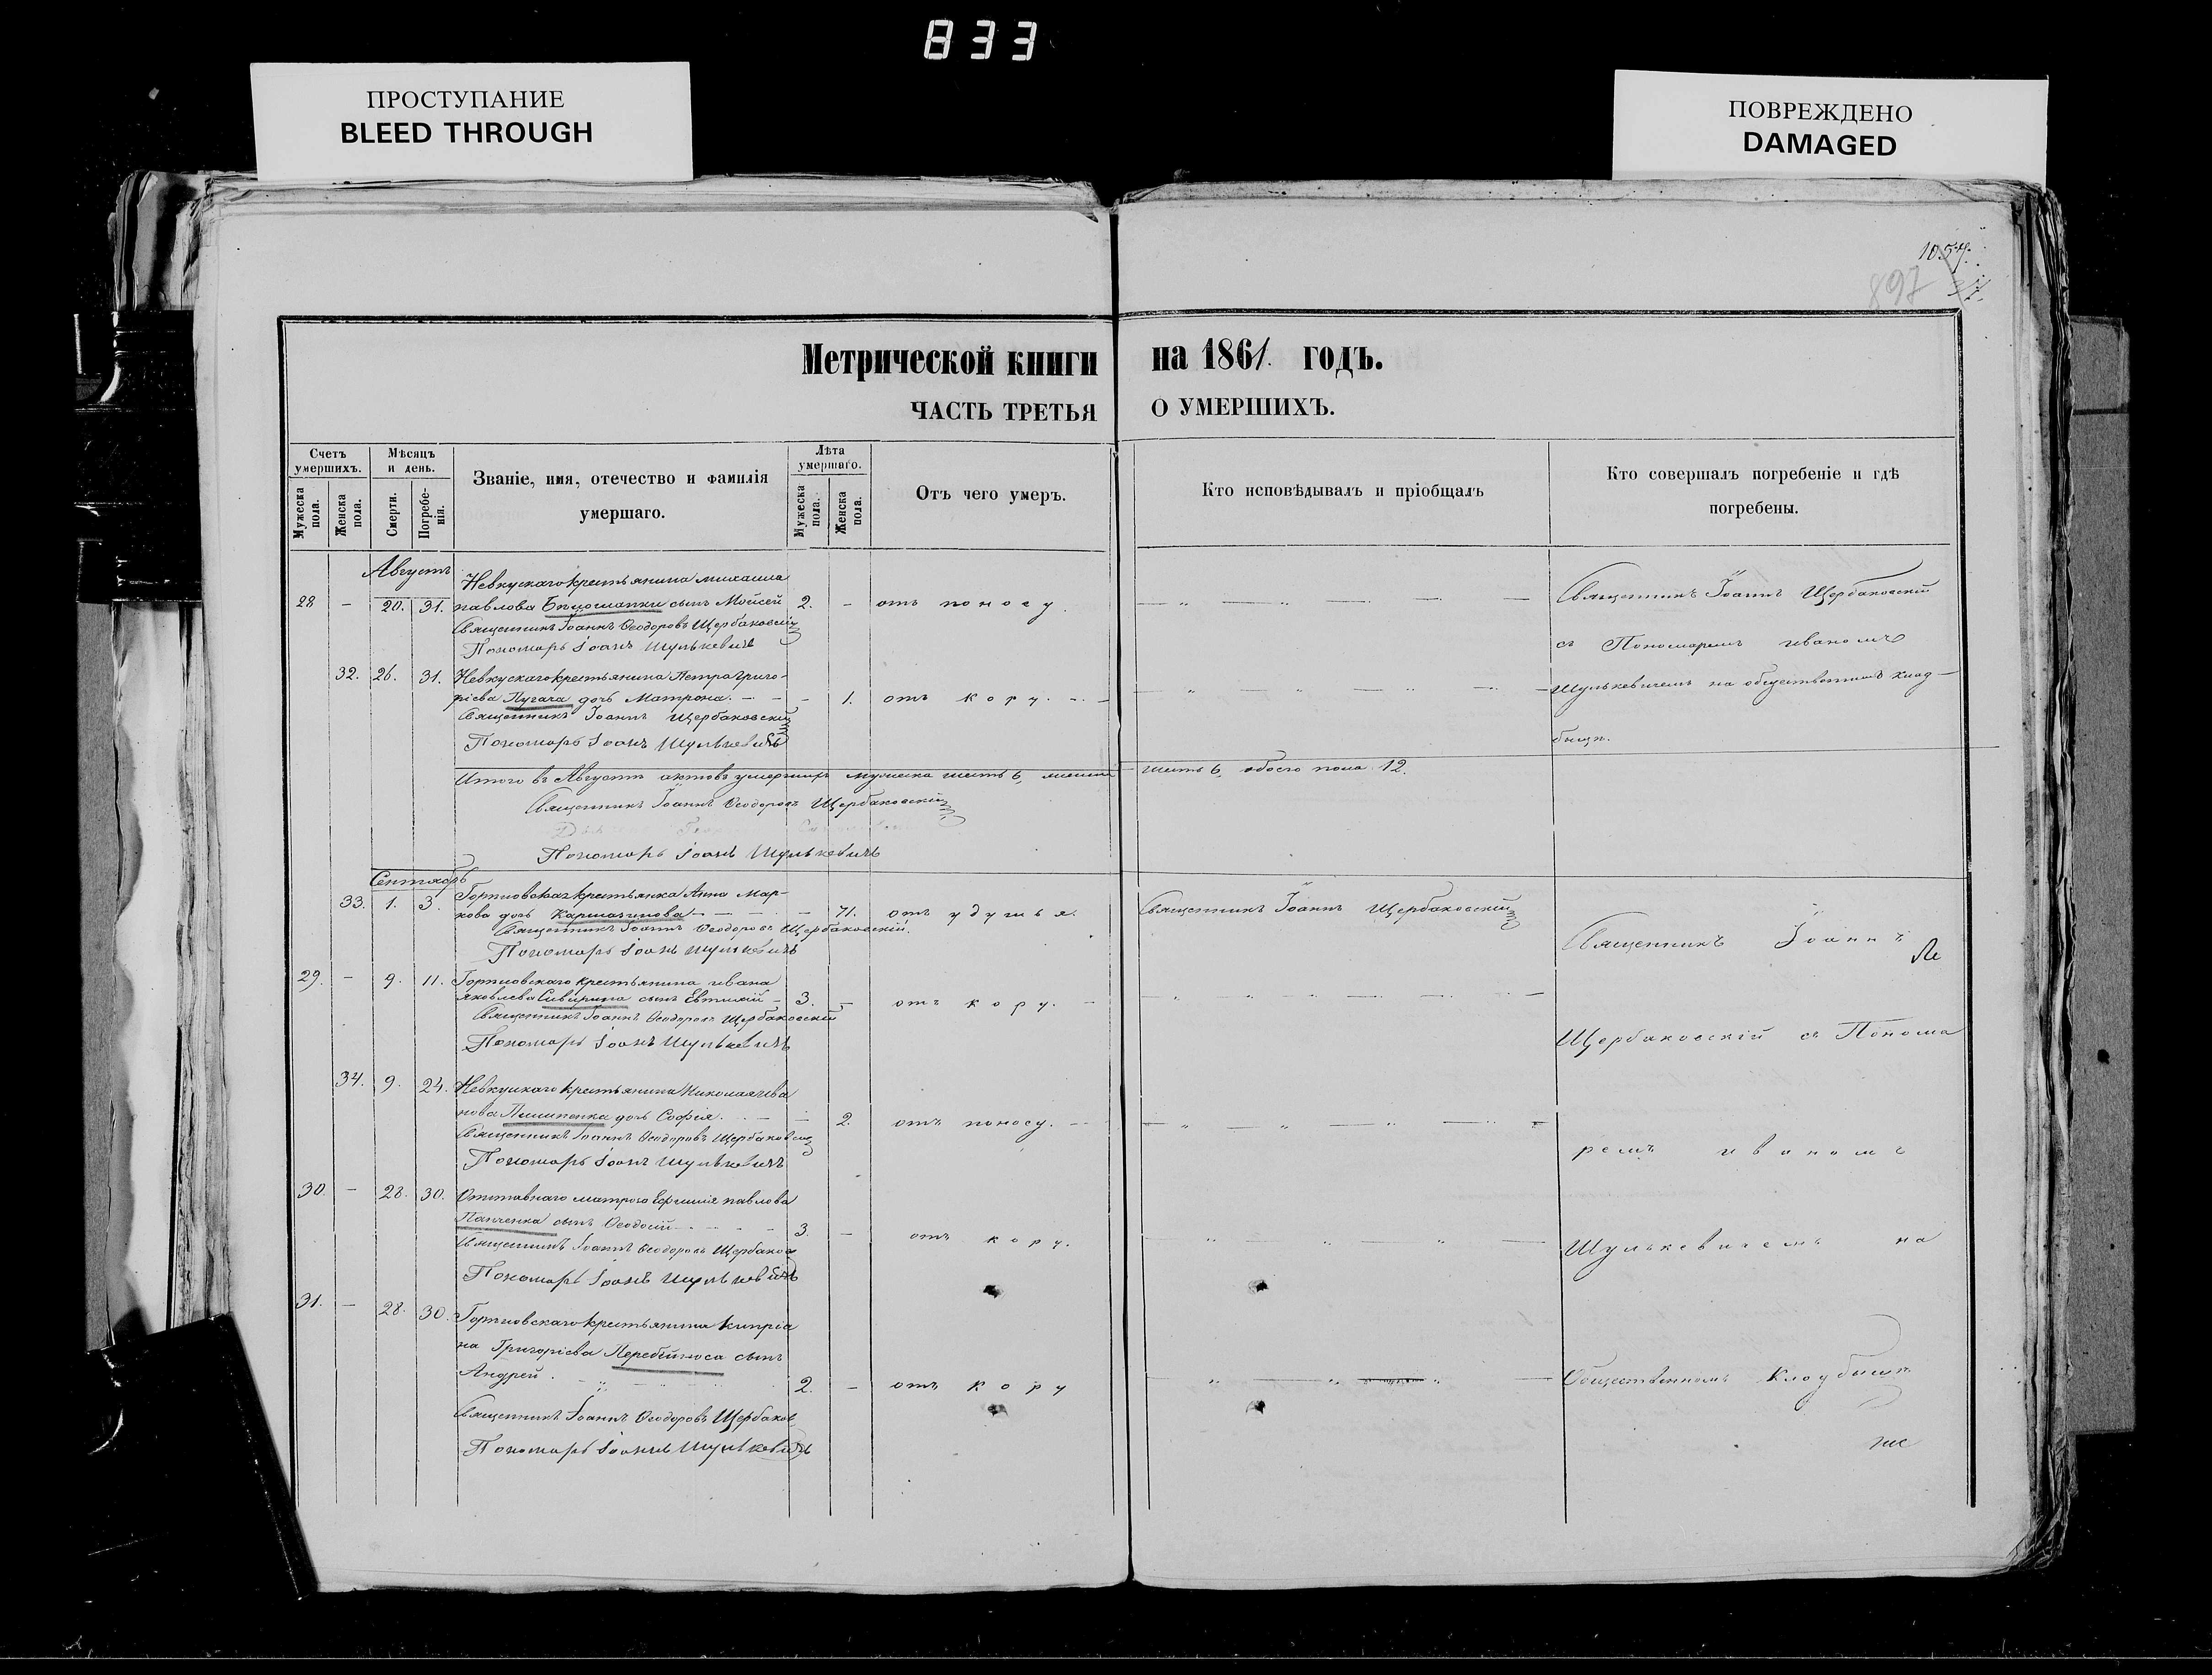 833
ПРОСТУПАНИЕ
BLEED THROUGH
ПОВРЕЖДЕНО
DAMAGED
897
Метрической книги на 1861. годъ.
ЧАСТЬ ТРЕТЬЯ О УМЕРШИХЪ.
Счетъ умершихъ.
Мужеска пола.
Женска пола.
Мѣсяцъ и день.
Смерти.
Погребенія.
Званіе, имя, отечество и фамилія умершаго.
Лѣта умершаго.
Мужеска пола.
Женска пола.
Отъ чего умеръ.
Кто исповѣдывалъ и пріобщалъ
Кто совершалъ погребеніе и гдѣ
погребены.
Августъ
крестьянина Михаила
28 – 20. 31. павлова сынъ Мойсей 2. – отъ поносу.
Священникъ Іоаннъ Ѳеодоровъ Щербаковскій
Пономарь Іоанъ Шулькевичъ
Священникъ Іоаннъ Щербаковскій
съ Пономаремъ иваномъ
Шулькевичемъ на общественномъ клад-
бищѣ.
32. 26. 31. крестьянина Петра Григо-
рієва Пугача дочь Матрона. – – – 1. отъ кору.
Священникъ Іоаннъ Щербаковскій
Пономарь Іоанъ Шулькевичъ
Итого въ Августѣ актовъ умершихъ мужеска шесть 6, женска шесть 6, обоего пола 12.
Священникъ Іоаннъ Ѳеодоровъ Щербаковскій
Пономарь Іоанъ Шулькевичъ
Сентябрь
крестьянка Анна Мар-
33. 1. 3. кова дочь – – – – 71. отъ удушья. Священникъ Іоаннъ Щербаковскій
Священникъ Іоаннъ Ѳеодоровъ Щербаковскій.
Пономарь Іоанъ Шулькевичъ
29. – 9. 11. крестьянина ивана
яковлева сынъ Евтихій – 3. – отъ кору. –
Священникъ Іоаннъ Ѳеодоровъ Щербаковскій
Пономарь Іоанъ Шулькевичъ
34. 9. 24. крестьянина Николая ива
нова Пилипенка дочь Софія. – 2. отъ поносу.
Священникъ Іоаннъ Ѳеодоровъ
Пономарь Іоанъ Шулькевичъ
30. – 28. 30. матроса павлова
Панченка сынъ Ѳеодосій – – – – 3. – отъ кору.
Священникъ Іоаннъ Ѳеодоровъ
Пономарь Іоанъ Шулькевичъ
31. – 28. 30. крестьянина Кипріа
на Григорієва Перебійноса сынъ
Андрей. 2. – отъ кору
Священникъ Іоаннъ Ѳеодоровъ
Пономарь Іоаннъ Шулькевичъ
Священникъ Іоаннъ
Щербаковскій съ Понома
ремъ иваномъ
Шулькевичемъ на
Общественномъ Кладбищѣ